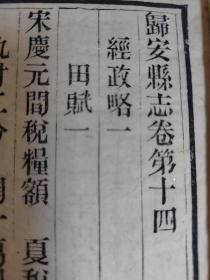 歸安縣志卷第十四
經政略一
田賦一
宋慶元間稅糧額　夏稅